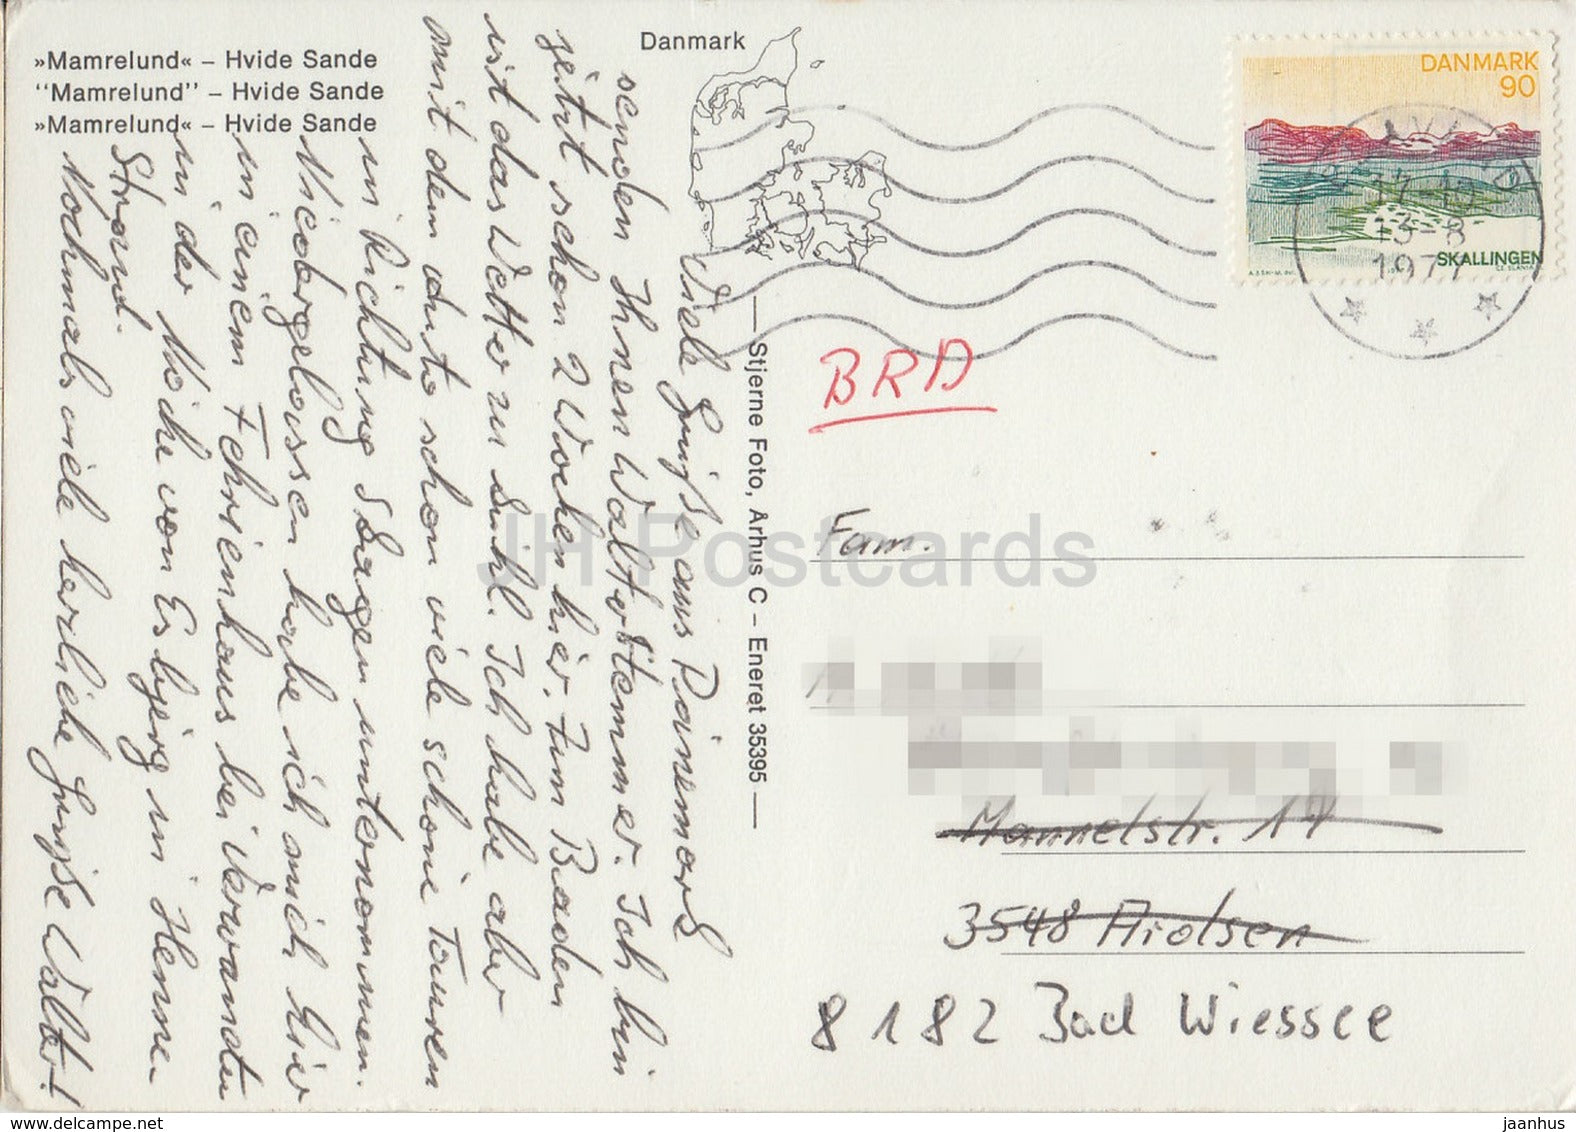 »Mamrelund« – Hvide Sande
"Mamrelund" – Hvide Sande
»Mamrelund« – Hvide Sande
Danmark
DANMARK
90
SKALLINGEN
17-18
1977
Viele Grüße aus Dänemark
senden Ihnen Walter Stemmer. Ich bin
jetzt schon 2 Wochen hier. Zum Baden
ist das Wetter zu kühl. Ich habe aber
mit dem Auto schon viele schöne Touren
in Richtung Skagen unternommen.
Niedergelassen habe ich mich hier
in einem Fehrienhaus bei Verwandten
in der Nähe von Esbjerg in Henne
Strand.
Nochmals viele herzliche Grüße Walter!
Stjerne Foto, Århus C – Eneret 35395
BRD
Fam.
Mannelstr. 17
3548 Arolsen
8182 Bad Wiessee
JH Postcards
www.delcampe.net
jaanhus